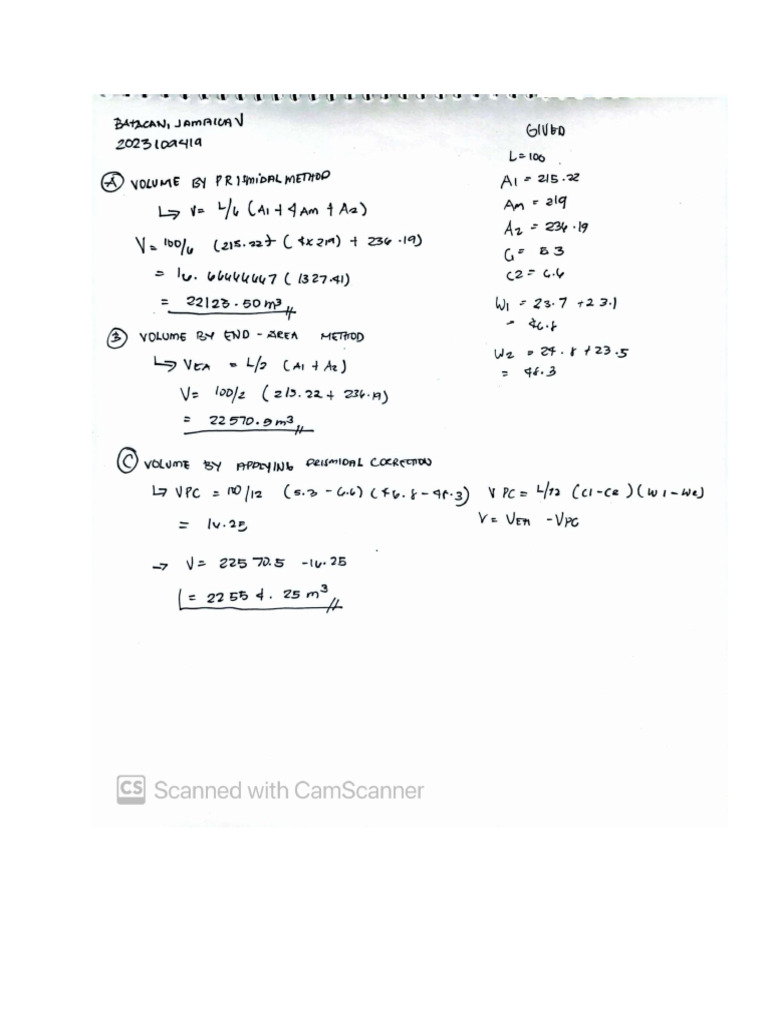 BATACAN, JAMAICA V
2023109419
GIVEN
L = 100
A1 = 215.22
Am = 219
A2 = 236.19
C1 = 5.3
C2 = 6.6
W1 = 23.7 + 23.1
= 46.8
W2 = 24.8 + 23.5
= 48.3
Ⓐ VOLUME BY PRISMIDAL METHOD
↳ V = L/6 (A1 + 4Am + A2)
V = 100/6 (215.22 + (4x219) + 236.19)
= 16.66666667 (1327.41)
= 22123.50 m³
Ⓑ VOLUME BY END-AREA METHOD
↳ VEA = L/2 (A1 + A2)
V = 100/2 (215.22 + 236.19)
= 22570.5 m³
Ⓒ VOLUME BY APPLYING PRISMIDAL CORRECTION
↳ VPC = 100/12 (5.3 - 6.6) (46.8 - 48.3) VPC = L/12 (C1 - C2) (W1 - W2)
= 16.25 V = VEA - VPC
→ V = 22570.5 - 16.25
= 22554.25 m³
CS Scanned with CamScanner